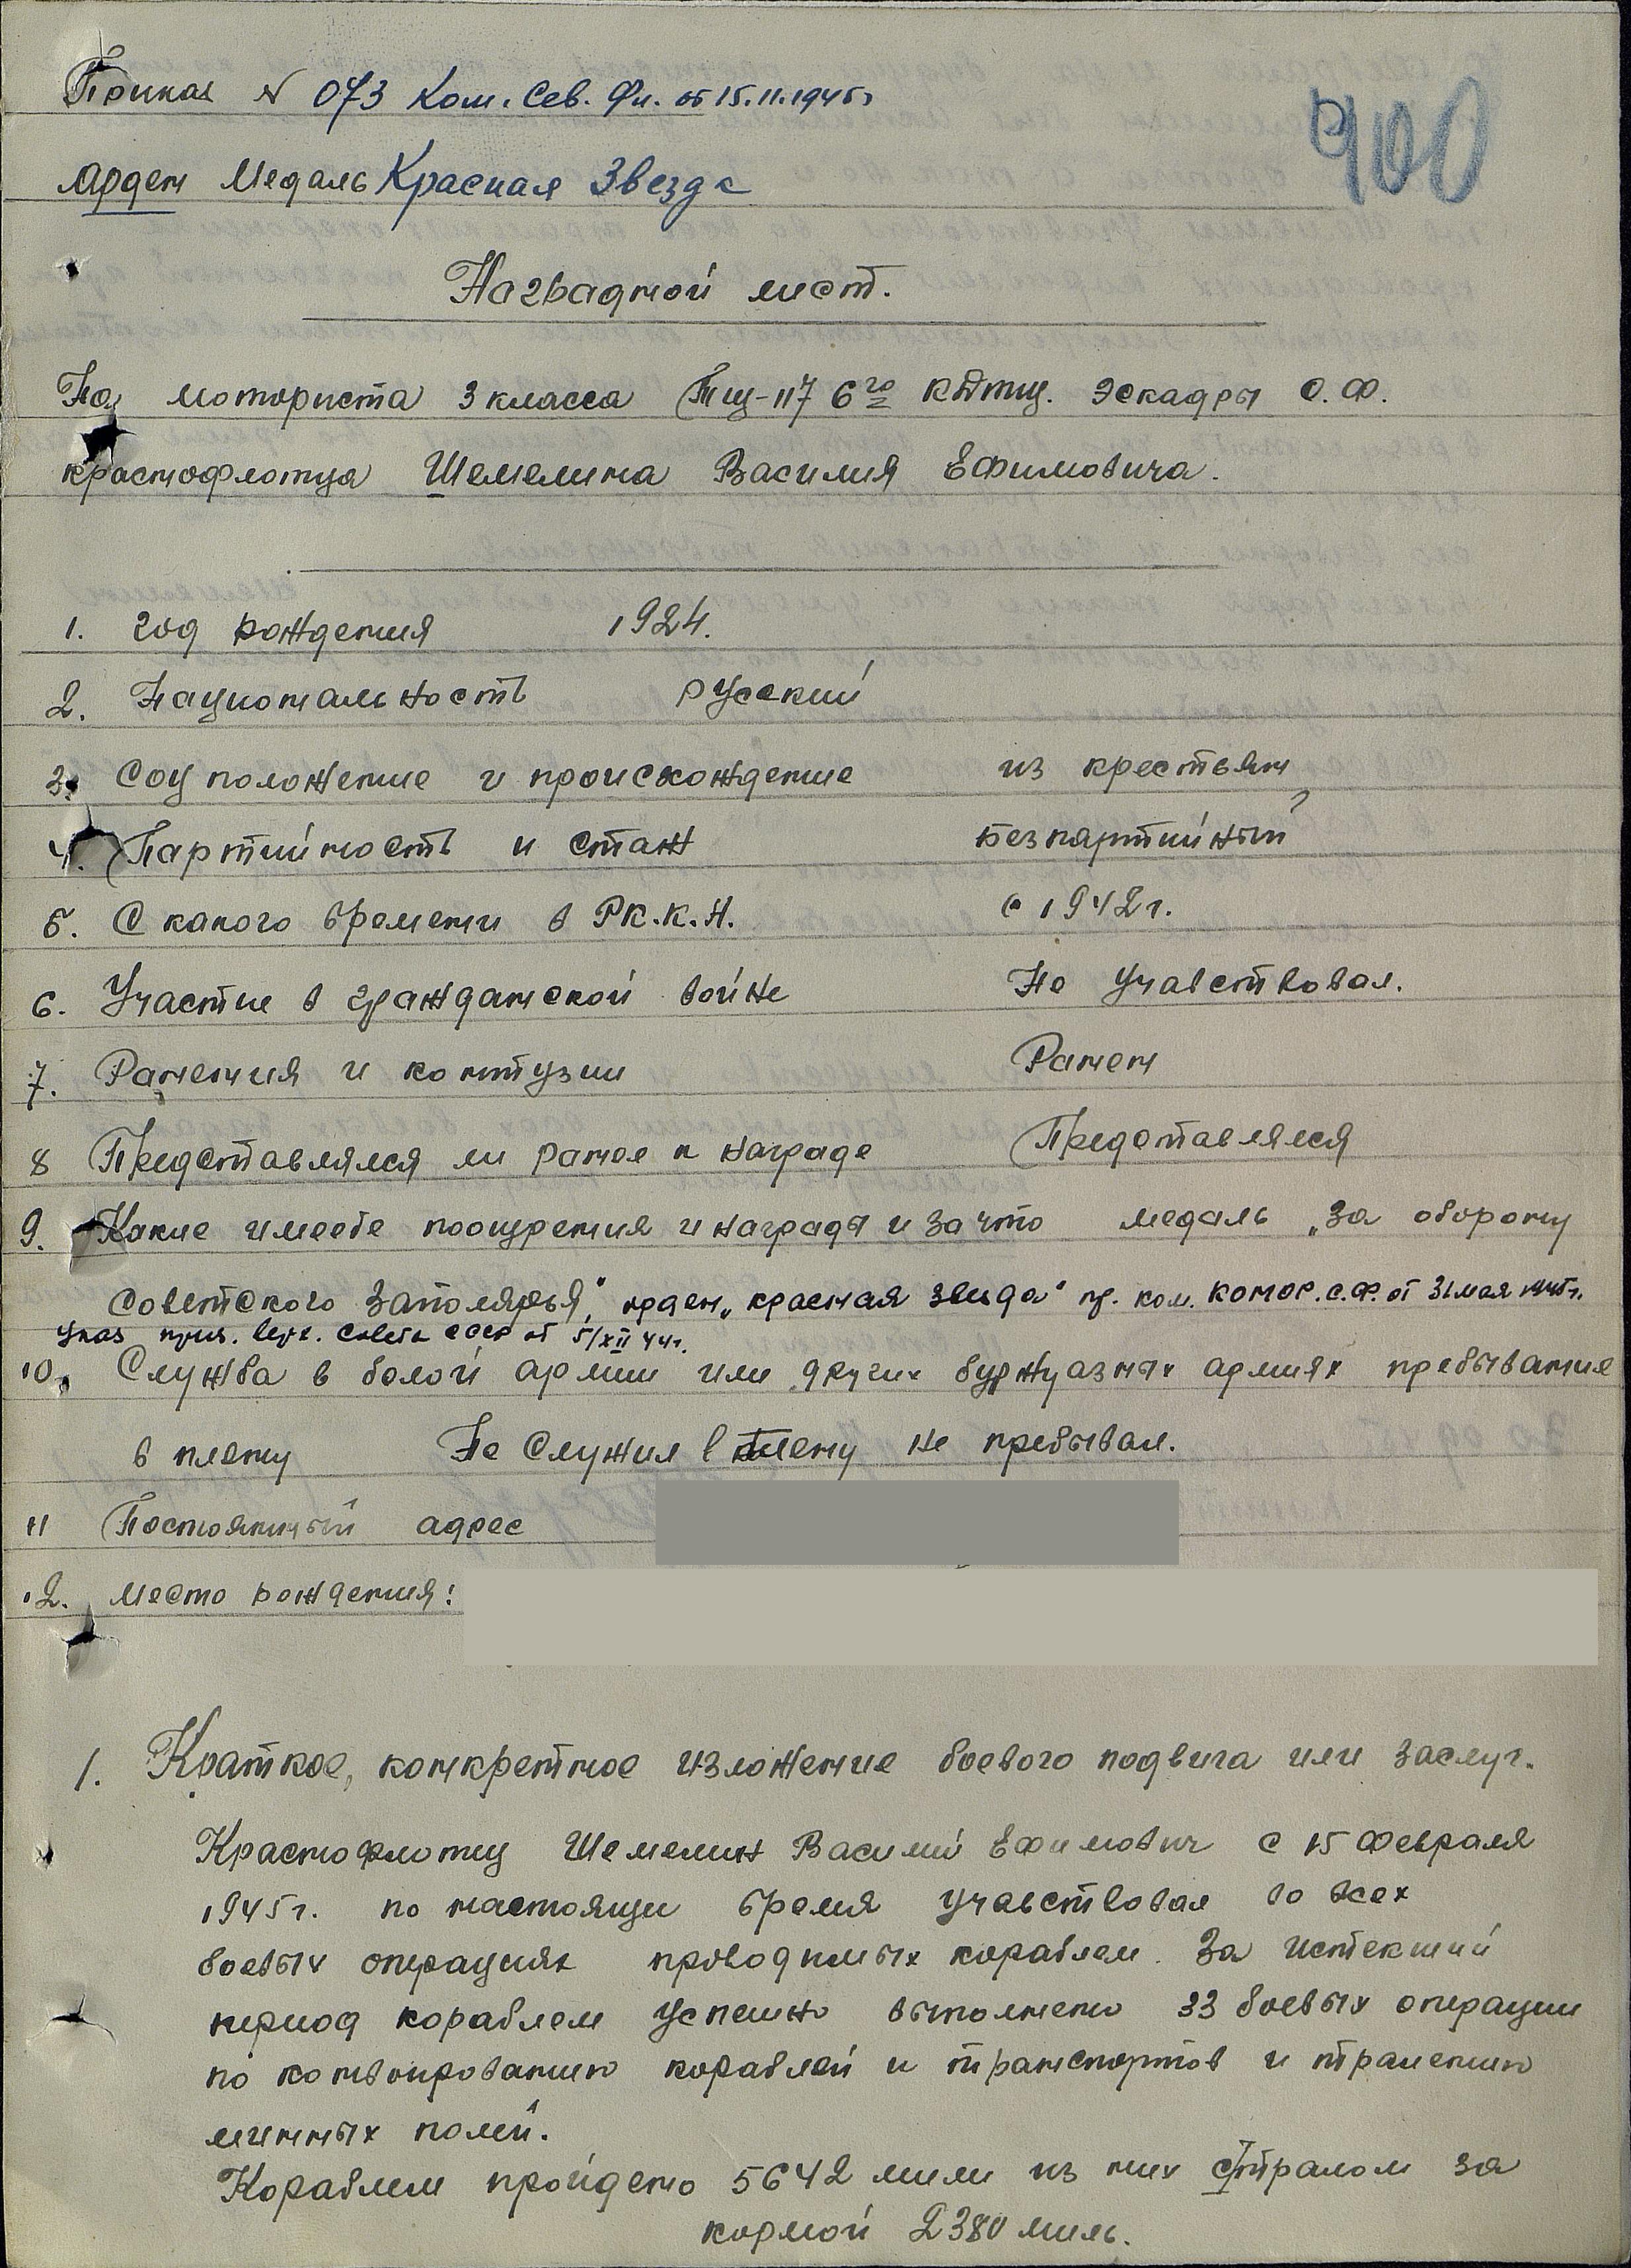 Приказ № 073 Ком. Сев. Фл. от 15.11.1945г
900
Орден Медаль Красная Звезда
Наградной лист.
На моториста 3 класса Тщ-117 6го КДтщ. Эскадры С.Ф.
краснофлотца Шемелина Василия Ефимовича.
1. год рождения 1924.
2. Национальность русский
3. Соц положение и происхождение из крестьян
4. Партийность и стаж безпартийный
5. С какого времени в РК.К.А. с 1942г.
6. Участие в гражданской войне Не учавствовал.
7. Ранения и контузии Ранен
8 Представлялся ли ранее к награде Представлялся
9. Какие имеете поощрения и награды и за что медаль „За оборону
Советского Заполярья", орден „красная звезда" пр. ком. С.Ф. от 31 мая 1945г.
Указ през. верх. совета СССР от 5/XII 44г.
10. Служба в белой армии или других буржуазных армиях пребывание
в плену Не служил в плену не пребывал.
11 Постоянный адрес
12. Место рождения:
1. Краткое, конкретное изложение боевого подвига или заслуг.
Краснофлотец Шемелин Василий Ефимович с 15 февраля
1945г. по настоящи время учавствовал во всех
боевых операциях проводимых кораблем. За истекший
период кораблем успешно выполнено 33 боевых операции
по конвоированию кораблей и транспортов и тралению
минных полей.
Кораблем пройдено 5642 мили из них с тралом за
кормой 2380 миль.